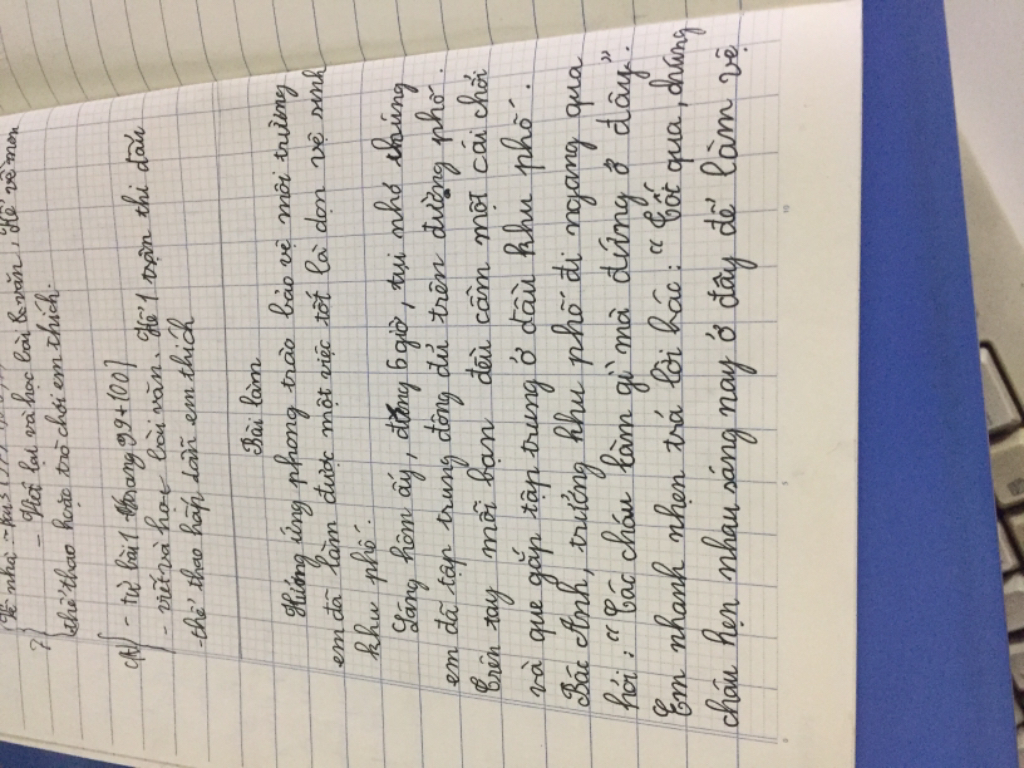 Về nhà
? - Kể lại và học bài làm văn, kể về môn
thể thao hoặc trò chơi em thích.
- từ bài 1 trang 99 + 100
CN - viết và học bài văn. Kể 1 trận thi đấu
thể thao hấp dẫn em thích
Bài làm
Hưởng ứng phong trào bảo vệ môi trường
em đã làm được một việc tốt là dọn vệ sinh
khu phố.
Sáng hôm ấy, đúng 6 giờ, tụi nhỏ chúng
em đã tập trung đông đủ trên đường phố.
Trên tay mỗi bạn đều cầm một cái chổi
và que gắp tập trung ở đầu khu phố.
Bác Anh, trưởng khu phố đi ngang qua
hỏi: " Các cháu làm gì mà đứng ở đây".
Em nhanh nhẹn trả lời bác: " Tối qua, chúng
cháu hẹn nhau sáng nay ở đây để làm vệ